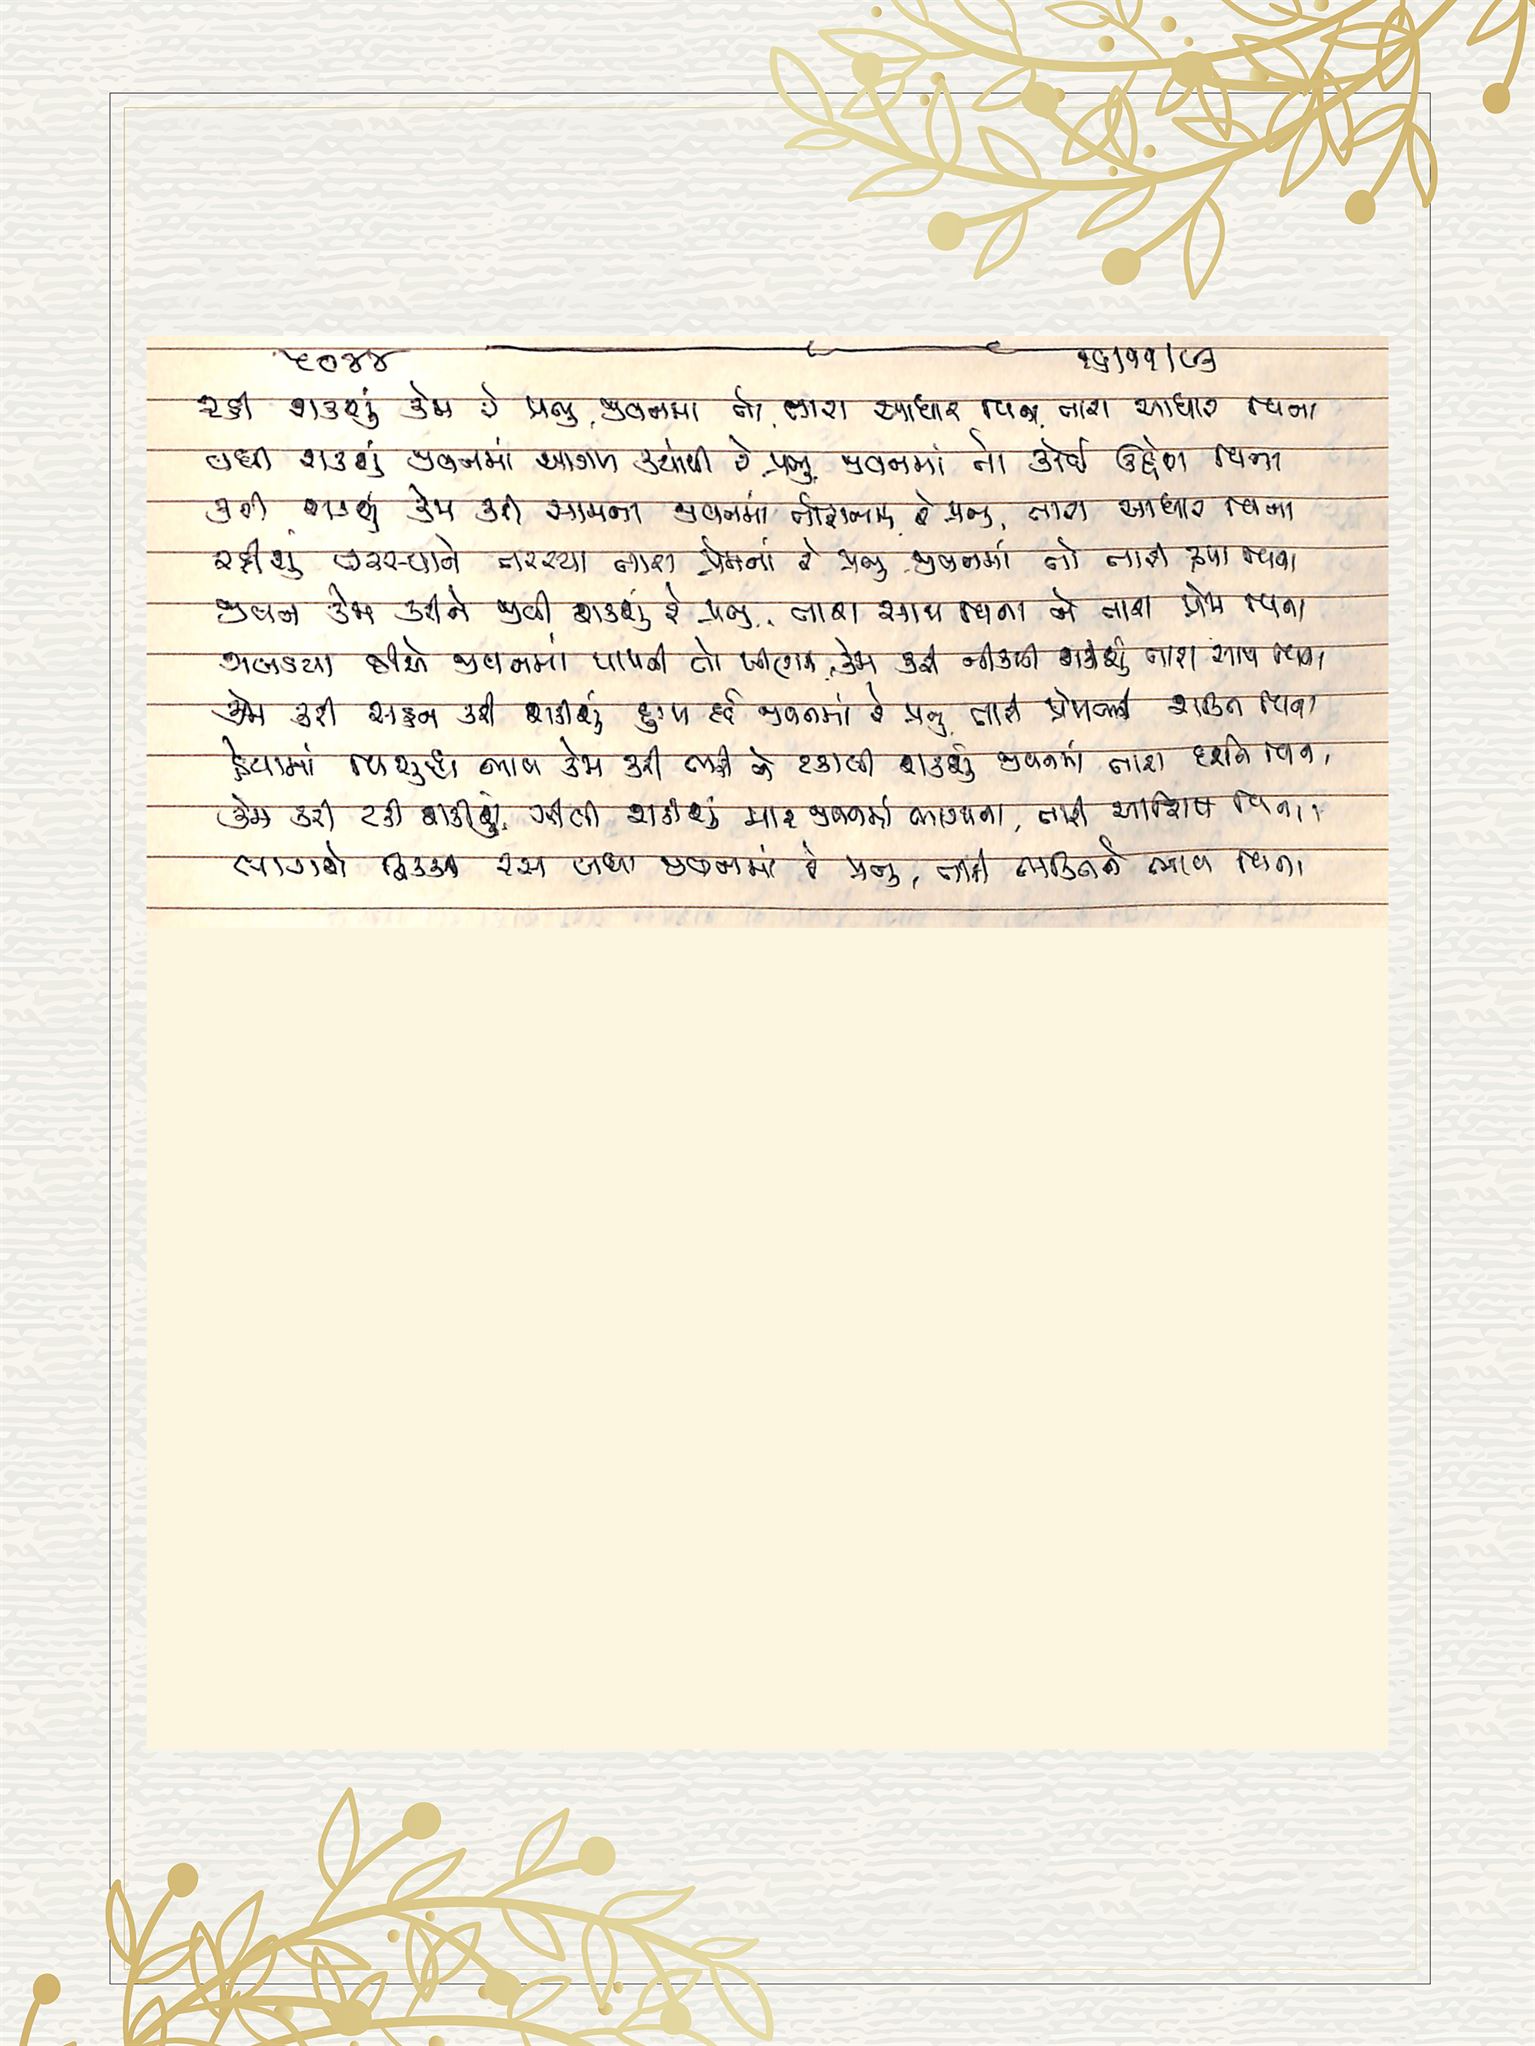 ૫૦૪૪ ૧૬/૧૧/૯૩
રહી શકશું કેમ રે પ્રભુ, જીવનમાં તો, તારા આધાર વિના, તારા આધાર વિના
વધી શકશું જીવનમાં આગળ ક્યાંથી રે પ્રભુ, જીવનમાં તો કોઈ ઉદ્દેશ વિના
કરી શકશું કેમ કરી સામના જીવનમાં રે પ્રભુ, તારા આધાર વિના
રહીશું તરસ્યાને તરસ્યા તારા પ્રેમનાં રે પ્રભુ, જીવનમાં તો તારી કૃપા વિના
જીવન કેમ કરીને જીવી શકશું રે પ્રભુ, તારા સાથ વિના ને તારા પ્રેમ વિના
હીએ જીવનમાં પાપની તો કેમ કરી નીકળી શકશું તારા સાથ વિના
કેમ કરી સહન કરી શકીશું દુઃખ દર્દ જીવનમાં રે પ્રભુ, તારી પ્રેમની શક્તિ વિના
હૈયામાં વિશુદ્ધ ભાવ કેમ કરી ભરી કે ટકાવી શકશું જીવનમાં તારા દર્શન વિના
કેમ કરી ટકી શકીશું, ઝીલી શકીશું માર જીવનમાં ભાગ્યના, તારી આશિષ વિના
લાગશે ફિક્કા રસ બધા જીવનમાં રે પ્રભુ, તારી ભક્તિને ભાવ વિના